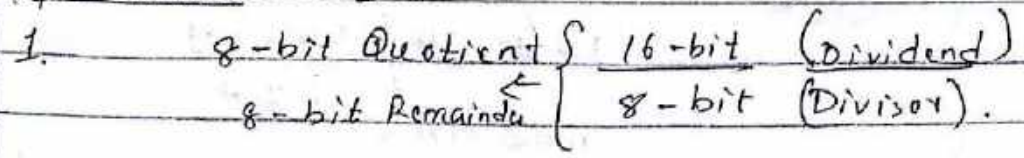 1. 8-bit Quotient { 16-bit (Dividend)
8-bit Remainder ← { 8-bit (Divisor).